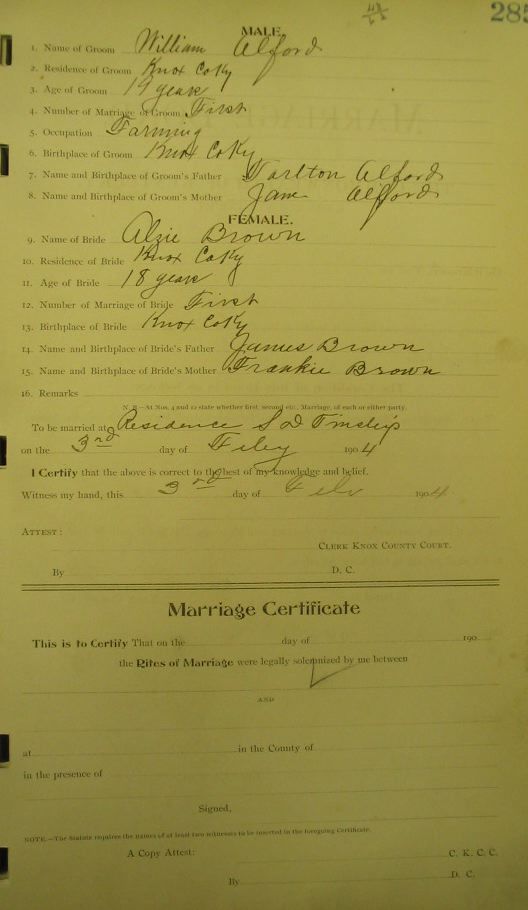 285
MALE.
1. Name of Groom William Alford
2. Residence of Groom Knox Co Ky
3. Age of Groom 19 years
4. Number of Marriage of Groom First
5. Occupation Farming
6. Birthplace of Groom Knox Co Ky
7. Name and Birthplace of Groom's Father Tarlton Alford
8. Name and Birthplace of Groom's Mother Jane Alford
FEMALE.
9. Name of Bride Alzie Brown
10. Residence of Bride Knox Co Ky
11. Age of Bride 18 years
12. Number of Marriage of Bride First
13. Birthplace of Bride Knox Co Ky
14. Name and Birthplace of Bride's Father James Brown
15. Name and Birthplace of Bride's Mother Frankie Brown
16. Remarks
N. B.—At Nos. 4 and 12 state whether first, second etc., Marriage, of each or either party.
To be married at Residence S D Tinsleys
on the 3rd day of Feby 1904
I Certify that the above is correct to the best of my knowledge and belief.
Witness my hand, this 3rd day of Feb 1904
ATTEST:
CLERK KNOX COUNTY COURT.
By D. C.
Marriage Certificate
This is to Certify That on the day of 190
the Rites of Marriage were legally solemnized by me between
AND
at in the County of
in the presence of
Signed,
NOTE.—The Statute requires the names of at least two witnesses to be inserted in the foregoing Certificate.
A Copy Attest: C. K. C. C.
By D. C.